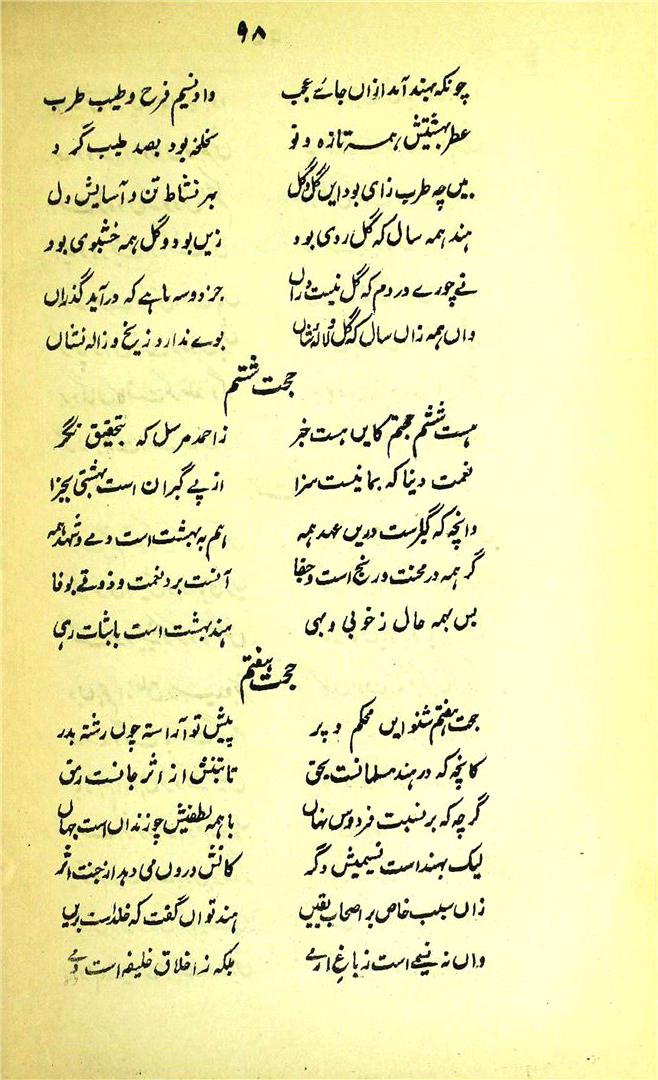 ۹۸
چونکہ بہند آمد ازاں جائے عجب واد نسیم فرح و طیب طرب
عطر بہشتیش ہمہ تازہ و نو سخلخہ بود بصد طیب گرد
بیں چہ طرب زای بود ایں گل و گل بہر نشاط تن و آسایش دل
ہند ہمہ سال کہ گل روی بود زیں بود و گل ہمہ خشبوی بود
نے چو رے در دم کہ گل نیست دراں جز دو سہ ماہے کہ درآید گذراں
واں ہمہ زاں سال کہ گل و لالہ شاں بوے ندارد ز یخ و ژالہ نشاں
حجت ششم
ہست ششم حجتم کایں ہست خبر ز احمد مرسل کہ بتحقیق نگر
نعمت دنیا کہ بما نیست سزا از پے گبران است بہشتی بجزا
وانچہ کہ گبر است دریں عہد ہمہ ہم بہ بہشت است دمے و شہد ہمہ
گر ہمہ در محنت و رنج است و جفا آنست برد نعمت و ذوقے بوفا
بس بہمہ حال ز خوبی و بہی ہند بہشت است باثبات رہی
حجت ہفتم
حجت ہفتم شنو ایں محکم و پر پیش تو آراستہ چوں رشتہ بدر
کانچہ کہ در ہند مسلمانست بحق تا بتنش از اثر جانست رمق
گرچہ کہ بر نسبت فردوس نہاں با ہمہ لطفیش چو زنداں است جہاں
لیک بہند است نسیمیش دگر کانش دروں می دہد از جنت اثر
زاں سبب خاص بر اصحاب یقیں ہند تواں گفت کہ خلد است بریں
واں نہ نسیمے است ز باغ ارمے بلکہ ز اخلاق خلیفہ است دمے